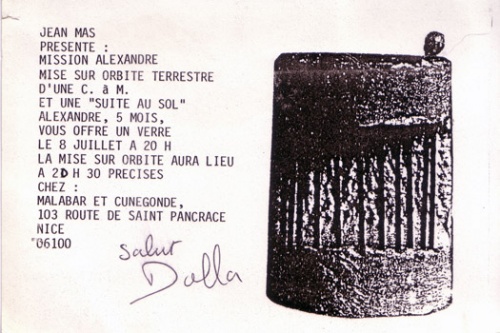 JEAN MAS
PRESENTE :
MISSION ALEXANDRE
MISE SUR ORBITE TERRESTRE
D'UNE C. à M.
ET UNE "SUITE AU SOL"
ALEXANDRE, 5 MOIS,
VOUS OFFRE UN VERRE
LE 8 JUILLET A 20 H
LA MISE SUR ORBITE AURA LIEU
A 2D H 30 PRECISES
CHEZ :
MALABAR ET CUNEGONDE,
103 ROUTE DE SAINT PANCRACE
NICE
06100
Salut
Dolla